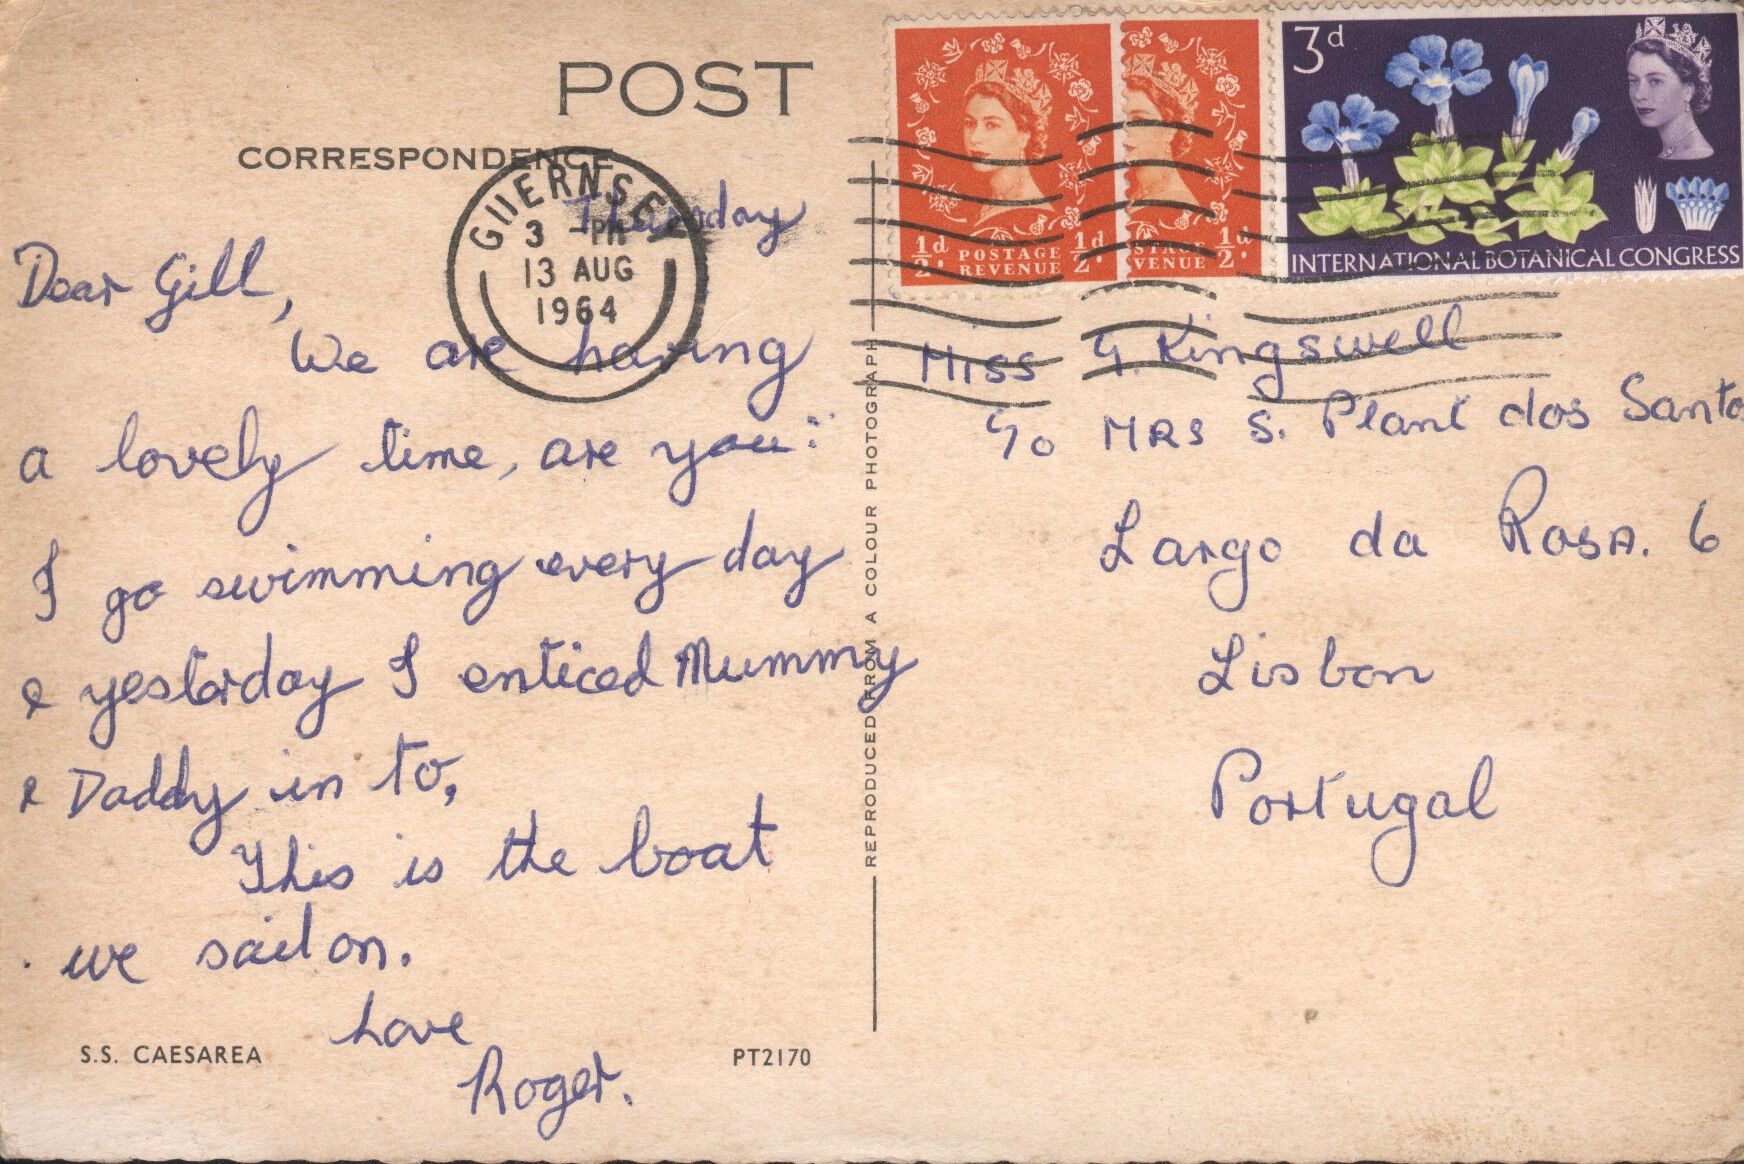 POST
CORRESPONDENCE
GUERNSEY
3 - PM
13 AUG
1964
Thursday
Dear Gill,
We are having
a lovely time, are you?
I go swimming every day
& yesterday I enticed Mummy
& Daddy in to,
This is the boat
we sail on.
Love
Roger.
S.S. CAESAREA
PT2170
REPRODUCED FROM A COLOUR PHOTOGRAPH
½d. POSTAGE REVENUE ½d.
STAGE VENUE ½d.
3d
INTERNATIONAL BOTANICAL CONGRESS
Miss G. Kingswell
c/o MRS S. Plant dos Santo
Largo da Rosa. 6
Lisbon
Portugal